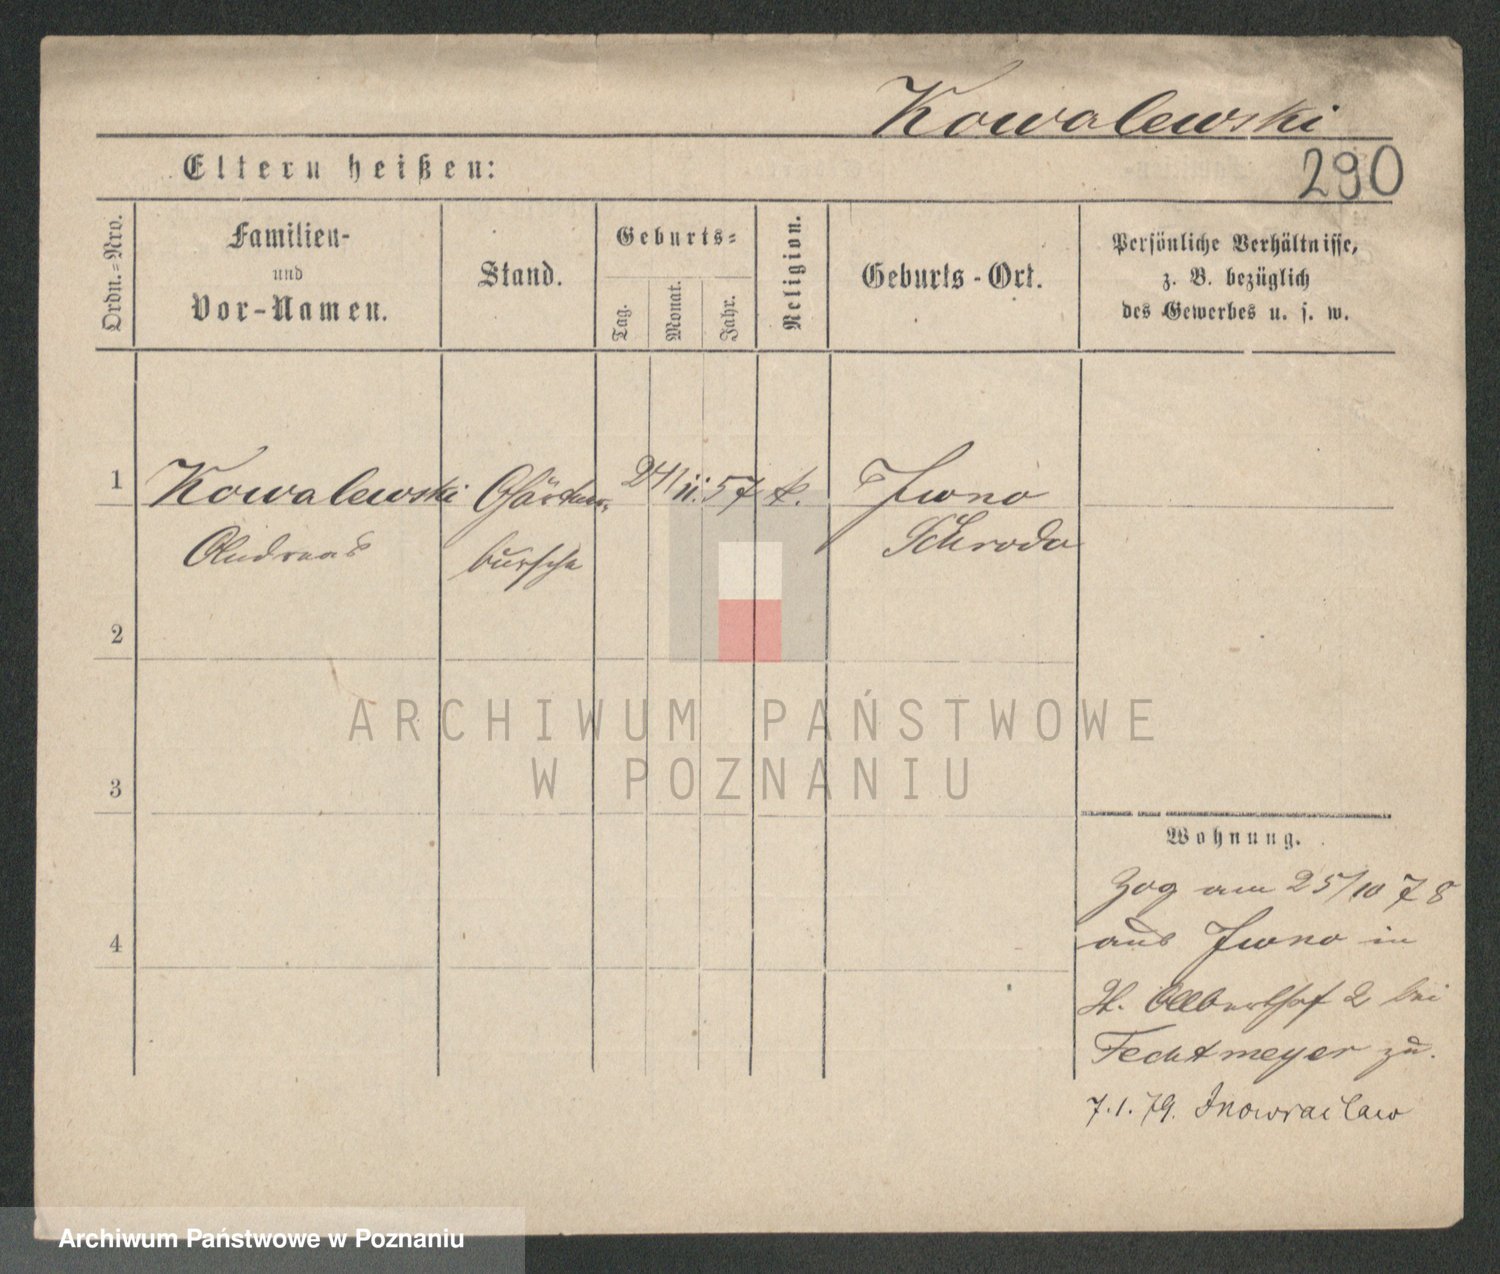 Kowalewski
Eltern heißen:
290
Ordn.=Nro.
Familien-
und
Vor-Namen.
Stand.
Geburts=
Tag.
Monat.
Jahr.
Religion.
Geburts-Ort.
Persönliche Verhältnisse,
z. B. bezüglich
des Gewerbes u. s. w.
1
Kowalewski Gärtner- 24/ 11. 57 k. Iwno
Andreas bursche Schroda
2
3
4
Wohnung.
Zog am 25/10 78
aus Iwno in
bei
Fechtmeyer zu.
7.1.79. Inowraclaw
ARCHIWUM PAŃSTWOWE
W POZNANIU
Archiwum Państwowe w Poznaniu